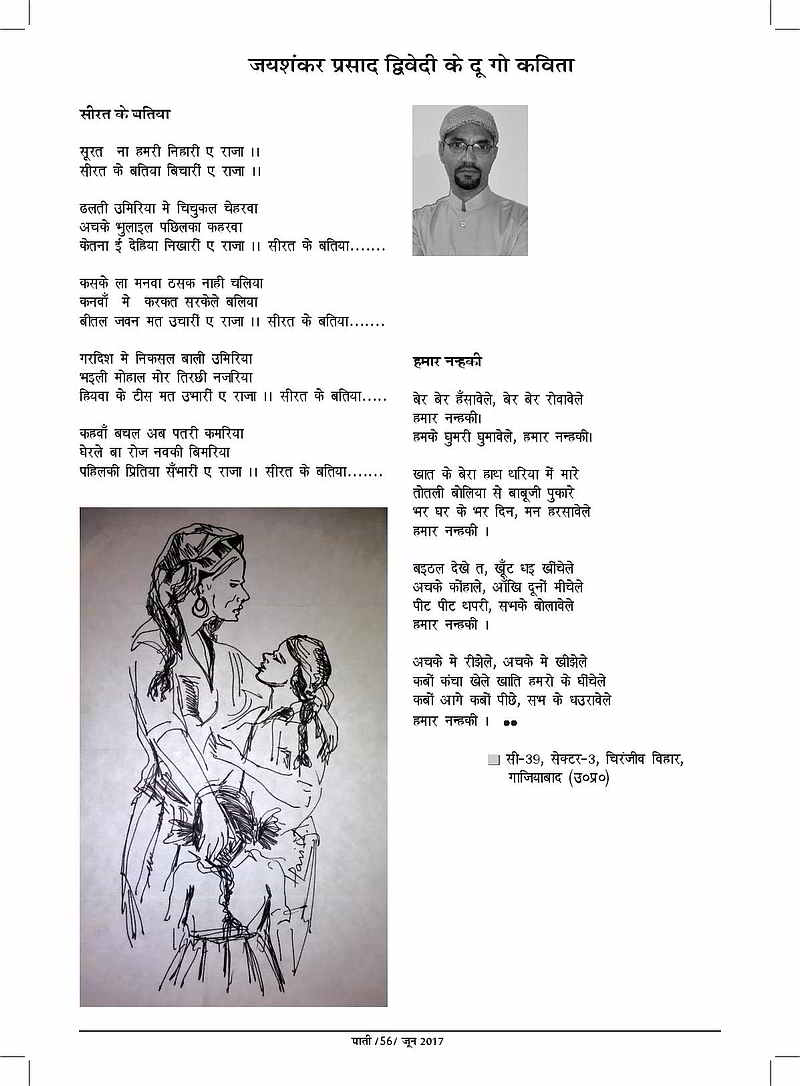 जयशंकर प्रसाद द्विवेदी के दू गो कविता
सीरत के बतिया
सूरत ना हमरी निहारीं ए राजा ।।
सीरत के बतिया बिचारीं ए राजा ।।
ढलती उमिरिया मे चिचुकल चेहरवा
अचके भुलाइल पछिलका कहरवा
केतना ई देहिया निखारीं ए राजा ।। सीरत के बतिया.......
कसके ला मनवा ठसक नाही चलिया
कनवाँ मे करकत सरकेले बलिया
बीतल जवन मत उचारीं ए राजा ।। सीरत के बतिया.......
गरदिश मे निकसल बाली उमिरिया
भइली मोहाल मोर तिरछी नजरिया
हियवा के टीस मत उभारीं ए राजा ।। सीरत के बतिया.....
कहवाँ बचल अब पतरी कमरिया
घेरले बा रोज नवकी बिमरिया
पहिलकी प्रितिया सँभारीं ए राजा ।। सीरत के बतिया.......
Harish
हमार नन्हकी
बेर बेर हँसावेले, बेर बेर रोवावेले
हमार नन्हकी।
हमके घुमरी घुमावेले, हमार नन्हकी।
खात के बेरा हाथ थरिया में मारे
तोतली बोलिया से बाबूजी पुकारे
भर घर के भर दिन, मन हरसावेले
हमार नन्हकी ।
बइठल देखे त, खूँट धइ खींचेले
अचके कोंहाले, आँखि दूनों मीचेले
पीट पीट थपरी, सभके बोलावेले
हमार नन्हकी ।
अचके मे रीझेले, अचके मे खीझेले
कबों कंचा खेले खाति हमरो के घींचेले
कबों आगे कबों पीछे, सभ के धउरावेले
हमार नन्हकी । ●●
सी-39, सेक्टर-3, चिरंजीव विहार,
गाजियाबाद (उ०प्र०)
पाती /56/ जून 2017